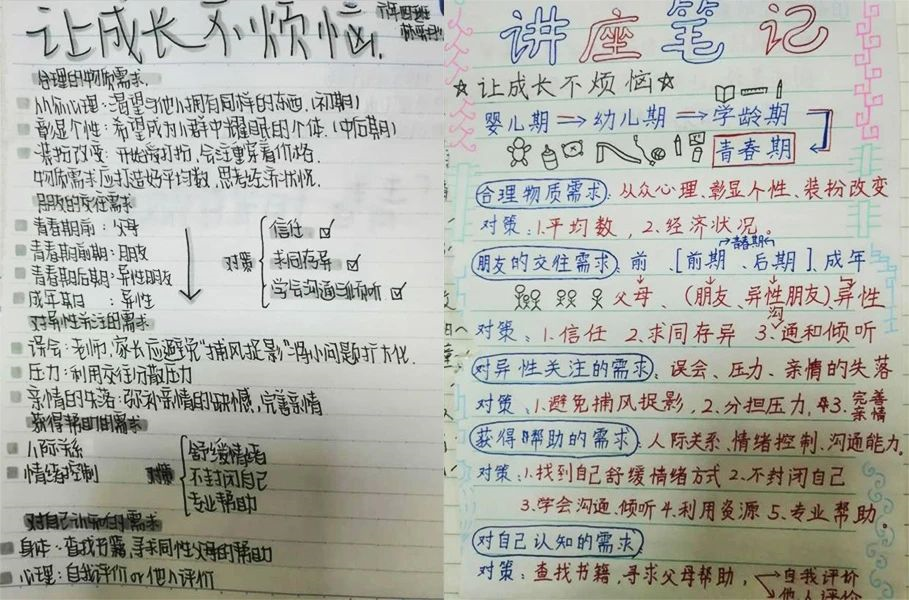 让成长不烦恼.
合理的物质需求.
从众心理:渴望与他人拥有同样的东西.(初期)
彰显个性:希望成为人群中耀眼的个体.(中后期)
装扮改变:开始爱打扮,会注重穿着价格.
物质需求应打造好平均数,思考经济状况.
朋友的交往需求
青春期前:父母
青春期前期:朋友
青春期后期:异性朋友
成年期:异性
对策
信任
求同存异
学会沟通与倾听
对异性关注的需求
误会:老师,家长应避免"捕风捉影"将小问题扩大化.
压力:利用交往分散压力
亲情的失落:弥补亲情的缺憾,完善亲情
获得帮助的需求
人际关系
情绪控制
对策
舒缓情绪
不封闭自己
专业帮助
对自己认知的需求
身体:查找书籍,寻求同性父母的帮助
心理:自我评价or他人评价
讲座笔记
☆让成长不烦恼☆
婴儿期→幼儿期→学龄期
青春期
合理物质需求:从众心理、彰显个性、装扮改变
对策:1.平均数,2.经济状况。
青春期
朋友的交往需求:前、[前期、后期]、成年
父母、(朋友、异性朋友)异性
对策:1.信任 2.求同存异 3.沟通和倾听
对异性关注的需求:误会、压力、亲情的失落
对策:1.避免捕风捉影,2.分担压力,3.完善亲情
获得帮助的需求:人际关系、情绪控制、沟通能力。
对策:1.找到自己舒缓情绪方式 2.不封闭自己
3.学会沟通、倾听 4.利用资源 5.专业帮助。
对自己认知的需求:
对策:查找书籍,寻求父母帮助,自我评价
他人评价